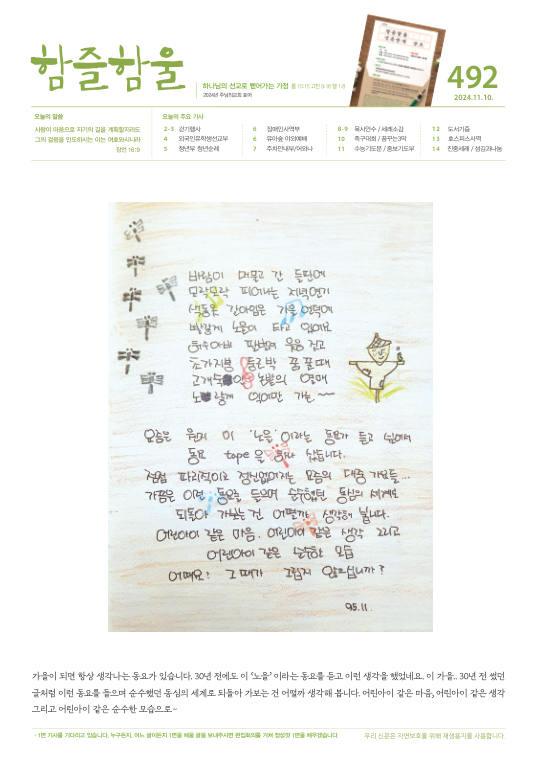 함즐함울
하나님의 선교로 뻗어가는 가정
2024년 주님의교회 표어
492
2024.11.10.
오늘의 말씀
사람이 마음으로 자기의 길을 계획할지라도
그의 걸음을 인도하시는 이는 여호와시니라
잠언 16:9
오늘의 주요 기사
2-3 걷기행사
4 외국인유학생선교부
5 청년부 청년순례
6 장애인사역부
6 유아숲 야외예배
7 주차안내부/어와나
8-9 목사안수 / 세례소감
10 축구대회 / 꿈꾸는3막
11 수능기도문 / 중보기도부
12 도서기증
13 호스피스사역
14 진중세례 / 섬김과나눔
바람이 머물고 간 들판에
모락모락 피어나는 저녁연기
색동옷 갈아입은 가을 언덕에
빨갛게 노을이 타고 있어요
허수아비 팔벌려 웃음 짓고
초가지붕 둥근박 꿈 꿀때
고개숙인 논밭의 열매
노랗게 익어만 가는 ~~
요즘은 웬지 이 '노을' 이라는 동요가 듣고 싶어서
동요 tape을 하나 샀습니다.
점점 파괴적이고 정신없어지는 요즘의 대중가요들...
가끔은 이런 동요를 들으며 순수했던 동심의 세계로
되돌아 가보는 건 어떨까 생각해 봅니다.
어린아이 같은 마음. 어린아이 같은 생각 그리고
어린아이 같은 순수한 모습
어때요? 그때가 그립지 않으십니까?
95.11.
가을이 되면 항상 생각나는 동요가 있습니다. 30년 전에도 이 ‘노을’ 이라는 동요를 듣고 이런 생각을 했었네요. 이 가을.. 30년 전 썼던
글처럼 이런 동요를 들으며 순수했던 동심의 세계로 되돌아 가보는 건 어떨까 생각해 봅니다. 어린아이 같은 마음, 어린아이 같은 생각
그리고 어린아이 같은 순수한 모습으로~
· 1면 기사를 기다리고 있습니다. 누구든지, 어느 글이든지 1면을 채울 글을 보내주시면 편집회의를 거쳐 정성껏 1면을 채우겠습니다
우리 신문은 자연보호를 위해 재생용지를 사용합니다.